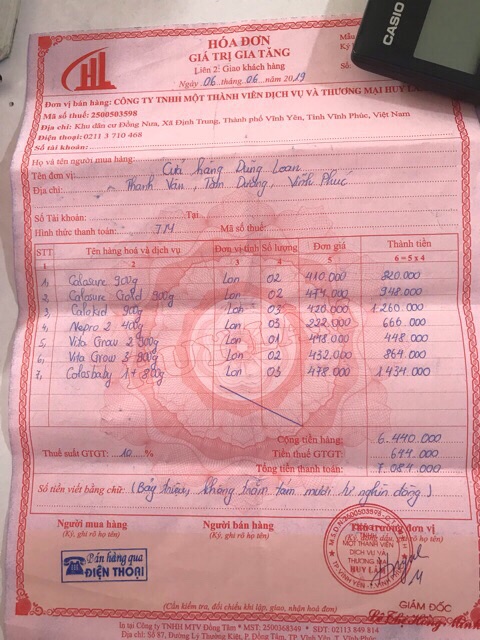 CASIO
HL
HÓA ĐƠN
GIÁ TRỊ GIA TĂNG
Liên 2: Giao khách hàng
Ngày 06 tháng 06 năm 2019
Mẫu số
Ký
Số
Đơn vị bán hàng: CÔNG TY TNHH MỘT THÀNH VIÊN DỊCH VỤ VÀ THƯƠNG MẠI HUY
Mã số thuế: 2500503598
Địa chỉ: Khu dân cư Đồng Nưa, Xã Định Trung, Thành phố Vĩnh Yên, Tỉnh Vĩnh Phúc, Việt Nam
Điện thoại: 0211 3 710 468
Số tài khoản:
Họ và tên người mua hàng:
Tên đơn vị: Cửa hàng Dũng Loan
Địa chỉ: Thanh Vân, Tam Dương, Vĩnh Phúc
Số Tài khoản: Tại
Hình thức thanh toán: TM Mã số thuế:
STT Tên hàng hoá và dịch vụ Đơn vị tính Số lượng Đơn giá Thành tiền
1 2 3 4 5 6 = 5 x 4
1, Calosure 900g Lon 02 410.000 820.000
2, Calosure Gold 900g Lon 02 474.000 948.000
3, Calokid 900g Lon 03 420.000 1.260.000
4, Nepro 2 400g Lon 03 222.000 666.000
5, Vita Grow 2 900g Lon 01 448.000 448.000
6, Vita Grow 3 900g Lon 02 432.000 864.000
7, Colosbaby 1+ 800g Lon 03 478.000 1.434.000
Cộng tiền hàng: 6.440.000
Thuế suất GTGT: 10 % Tiền thuế GTGT: 644.000
Tổng tiền thanh toán: 7.084.000
Số tiền viết bằng chữ: (Bảy triệu, không trăm tám mươi tư nghìn đồng)
Người mua hàng Người bán hàng Thủ trưởng đơn vị
(Ký, ghi rõ họ tên) (Ký, ghi rõ họ tên)
Bán hàng qua
ĐIỆN THOẠI
M.S.D.N:2500503598
MỘT THÀNH VIÊN
DỊCH VỤ VÀ
THƯƠNG MẠI
GIÁM ĐỐC
(Cần kiểm tra, đối chiếu khi lập, giao, nhận hoá đơn)
In tại Công ty TNHH MTV Đồng Tâm * MST: 2500368349 * SĐT: 02113 849 814
Địa chỉ: Số 87, Đường Lý Thường Kiệt, P. Đồng Tâm, TP. Vĩnh Yên, T. Vĩnh Phúc